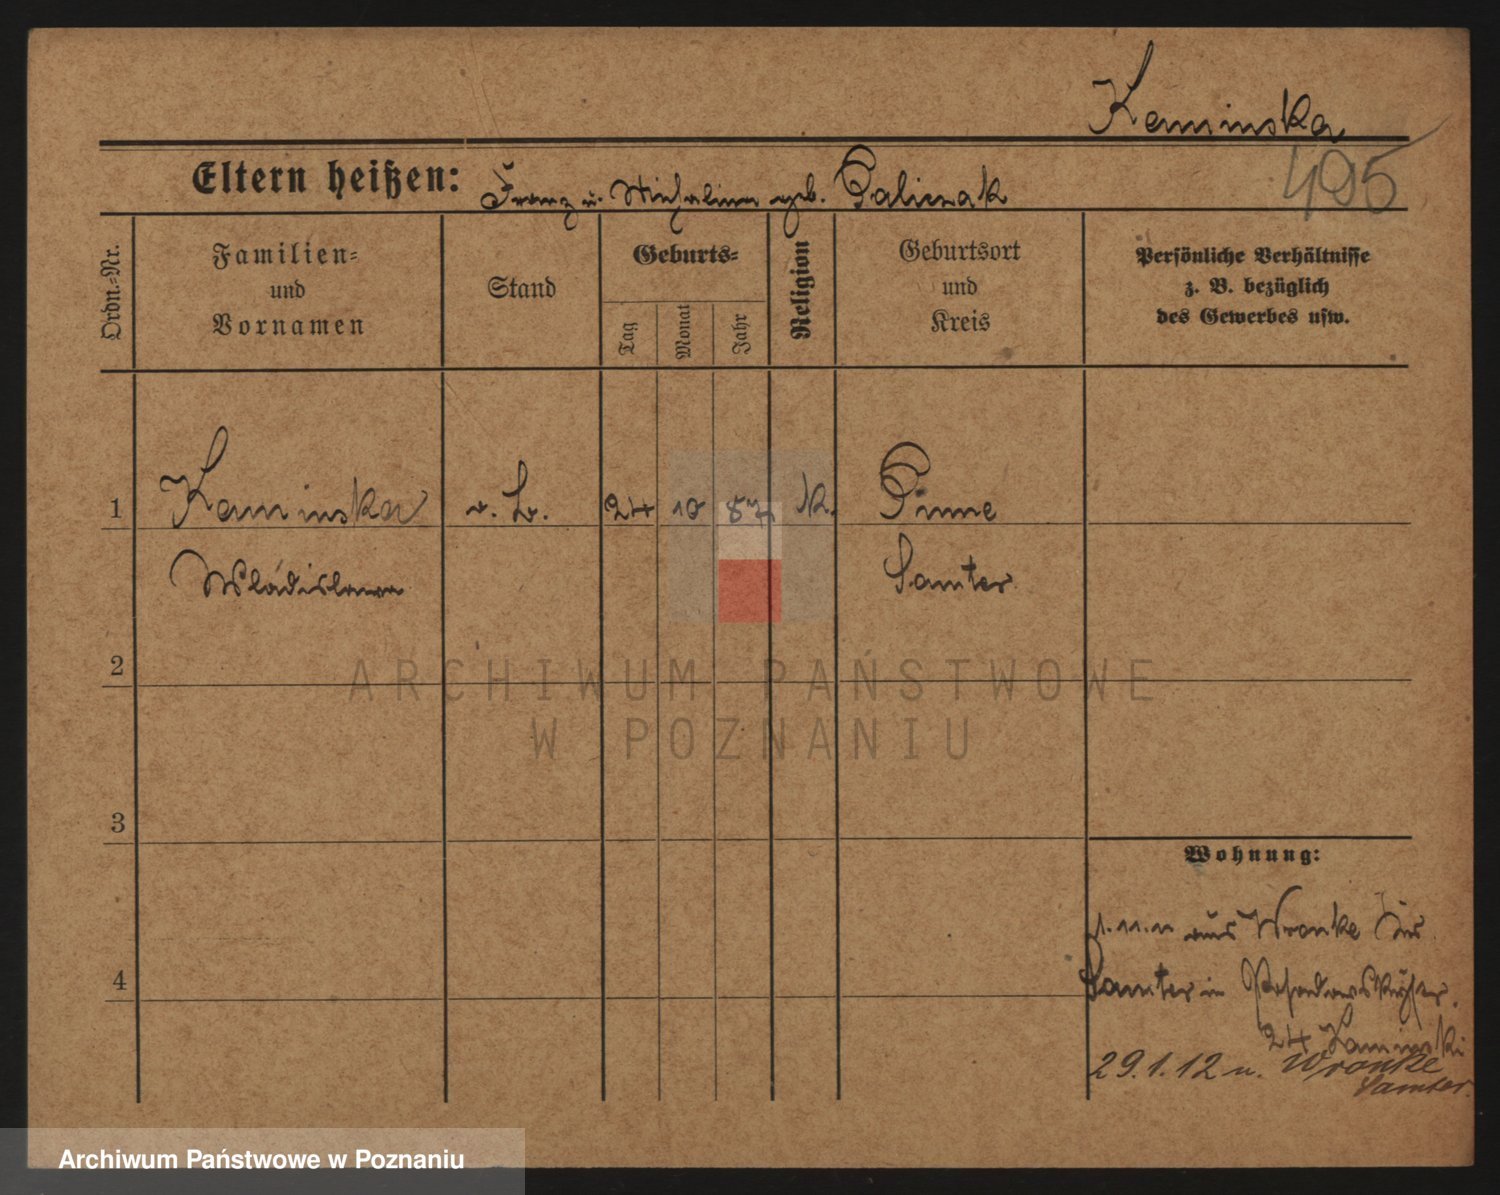 Kaminska
495
Eltern heißen: Franz u. Michalina geb. Galiczak
Ordn.-Nr.
Familien-
und
Vornamen
Stand
Geburts-
Tag
Monat
Jahr
Religion
Geburtsort
und
Kreis
Persönliche Verhältnisse
z. B. bezüglich
des Gewerbes usw.
1
Kaminska
24 10 87 K.
Pinne
Wladislawa
Samter
2
ARCHIWUM PAŃSTWOWE
W POZNANIU
3
Wohnung:
1.11.11 aus Wronke Kr
4
Samter in
24 Kaminski
29.1.12 n. Wronke
Samter.
Archiwum Państwowe w Poznaniu